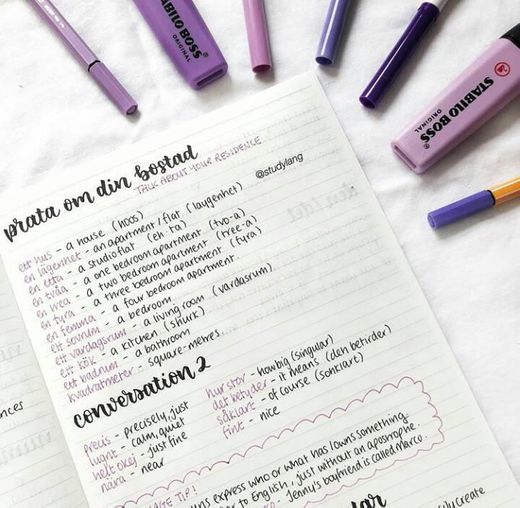 STABILO BOSS
ORIGINAL
STABILO BOSS
ORIGINAL
prata om din bostad
TALK ABOUT YOUR RESIDENCE
@studylang
ett hus - a house (hoos)
en lägenhet - an apartment/flat (laygenhet)
en etta - a studio flat (eh ta)
en tvåa - a one bedroom apartment (tvo-a)
en trea - a two bedroom apartment (tree-a)
en fyra - a three bedroom apartment (fyra)
en femma - a four bedroom apartment.
ett sovrum - a bedroom
ett vardagsrum - a living room (vardasrum)
ett kök - a kitchen (shurk)
ett badrum - a bathroom
kvadratmeter - square-metres
conversation 2
precis - precisely, just
lugnt - calm, quiet
helt okej - just fine
nära - near
hur stor - how big (singular)
det betyder - it means (dan betirder)
såklart - of course (sonklart)
fint - nice
TIP!
express who or what has/owns something.
to English, just without an apostrophe.
Jenny's boyfriend is called Marco.
create